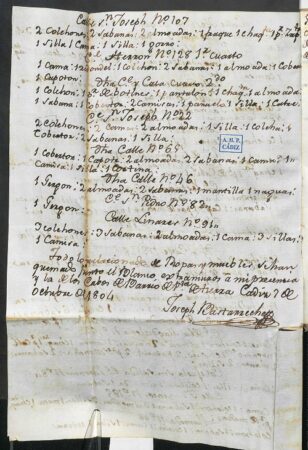 Calle Sn. Joseph No. 107
2 Colchones: 2 Sabanas: 2 almoadas:
1 Silla: 1 Cama: 1 Silla: 1 gorro:
Herron No. 128 1r. Cuarto
1 Cama: 2 Colchon: 2 Sabanas: 1 almoada: 1 Cober
1 Capoton:
Dha Ce. y Casa Cuarto 2do.
1 Colchon: 1 par de botines: 1 pantalon: 1 Chaq: 1 almoada:
1 Sabana: 1 Cobertor: 2 Camisas: 1 pañuelo: 1 Silla: 1 Catre:
Ce. Sn. Joseph No. 22
2 Colchones: 2 Cama: 2 almoadas: 1 Silla: 1 Colcha: 1
Cobertor: 2 Sabanas: 1 Silla:
A.H.P.
CÁDIZ
Dha Calle No. 65
1 Cobertor: 1 Capote: 2 almoadas: 2 Sabanas: 1 Cami: 1
Camisa: 1 Silla: 1 Cortina:
Dha Calle No. 46
1 Gergon: 2 almoadas: 2 Sabanas: 1 mantilla: 1 naguas:
Ce. Sn. Pedro No. 82
1 Gergon:
Calle Linares No. 94
3 Colchones: 3 Sabanas: 2 almoadas: 1 Cama: 3 Sillas,
1 Camisa:
Todo lo relacionado de Ropa y muebles se han
quemado Junto el Blanco extramuros a mi presencia
y la de los Cabos de Barrio de Pta. de tierra Cadiz 7 de
Octubre de 1804
Joseph Bustamante